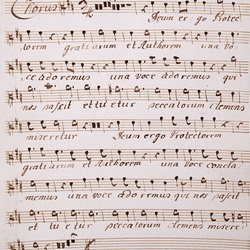 Chorus
Deum er go Protec
torem gratiarum et Authorem una vo
ce adoremus una voce adoremus qui
nos pascit et tuetur peccatorum clemens
miseretur Deum ergo Protectorem
gratiarum et Authorem una voce concla
memus una voce adoremus qui nos pascit
et tu etur peccatorum clemens misere